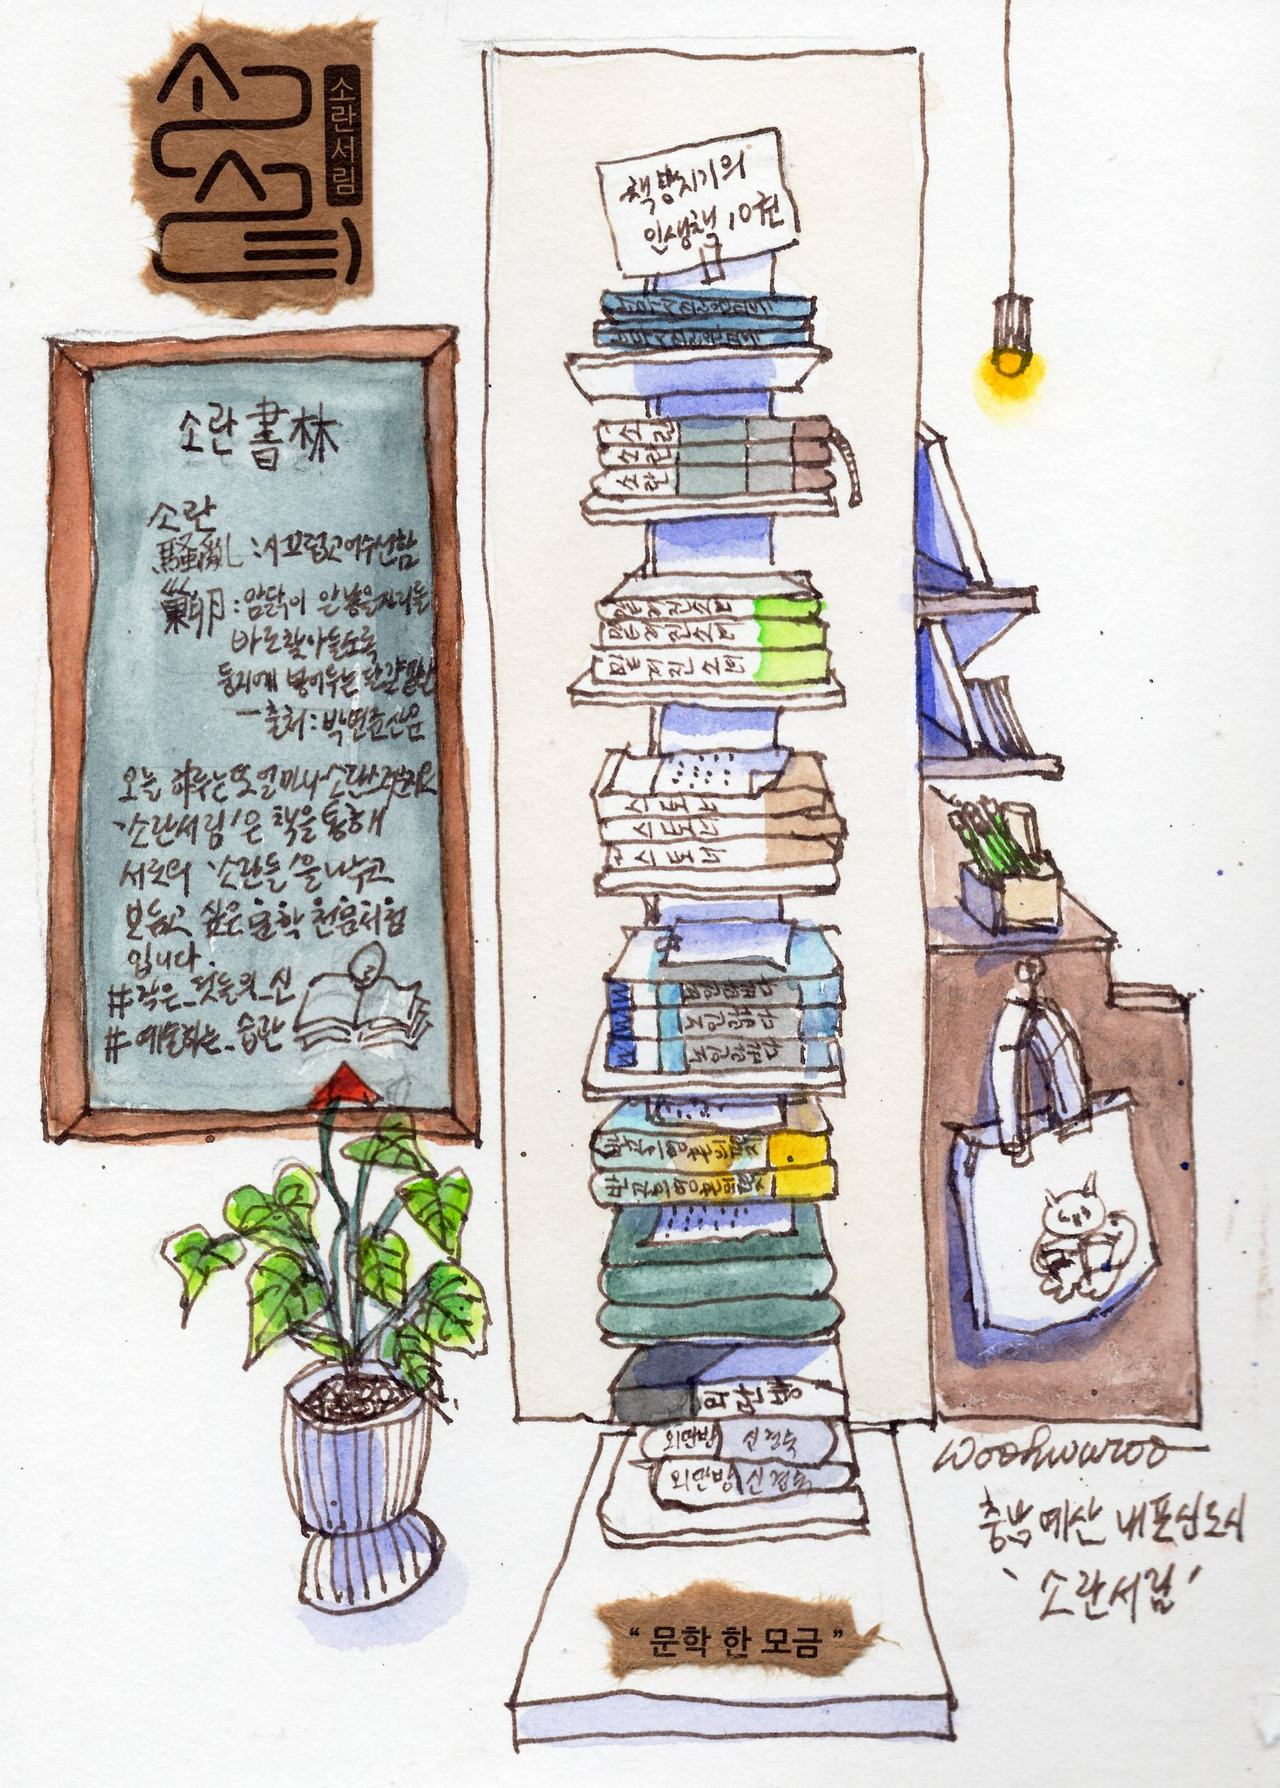 소란서림
책방지기의
인생책 10권
소란書林
소란
騷亂 : 시끄럽고 어수선함
巢卵 : 암탉이 알 낳을 자리를
바로 찾아들도록
둥지에 넣어두는 달걀
- 출처 : 박연준 산문
오늘 하루는 또 얼마나 소란스러웠나요
'소란서림'은 책을 통해
서로의 '소란들'을 나누고
보듬고 싶은 문학 전문서점
입니다.
#작은_것들의_신
#예술하는_습관
소란
소란
소란
스토너
스토너
스토너
외딴방 신경숙
외딴방 신경숙
"문학 한 모금"
woohwaroo
충남 예산 내포신도시
'소란서림'